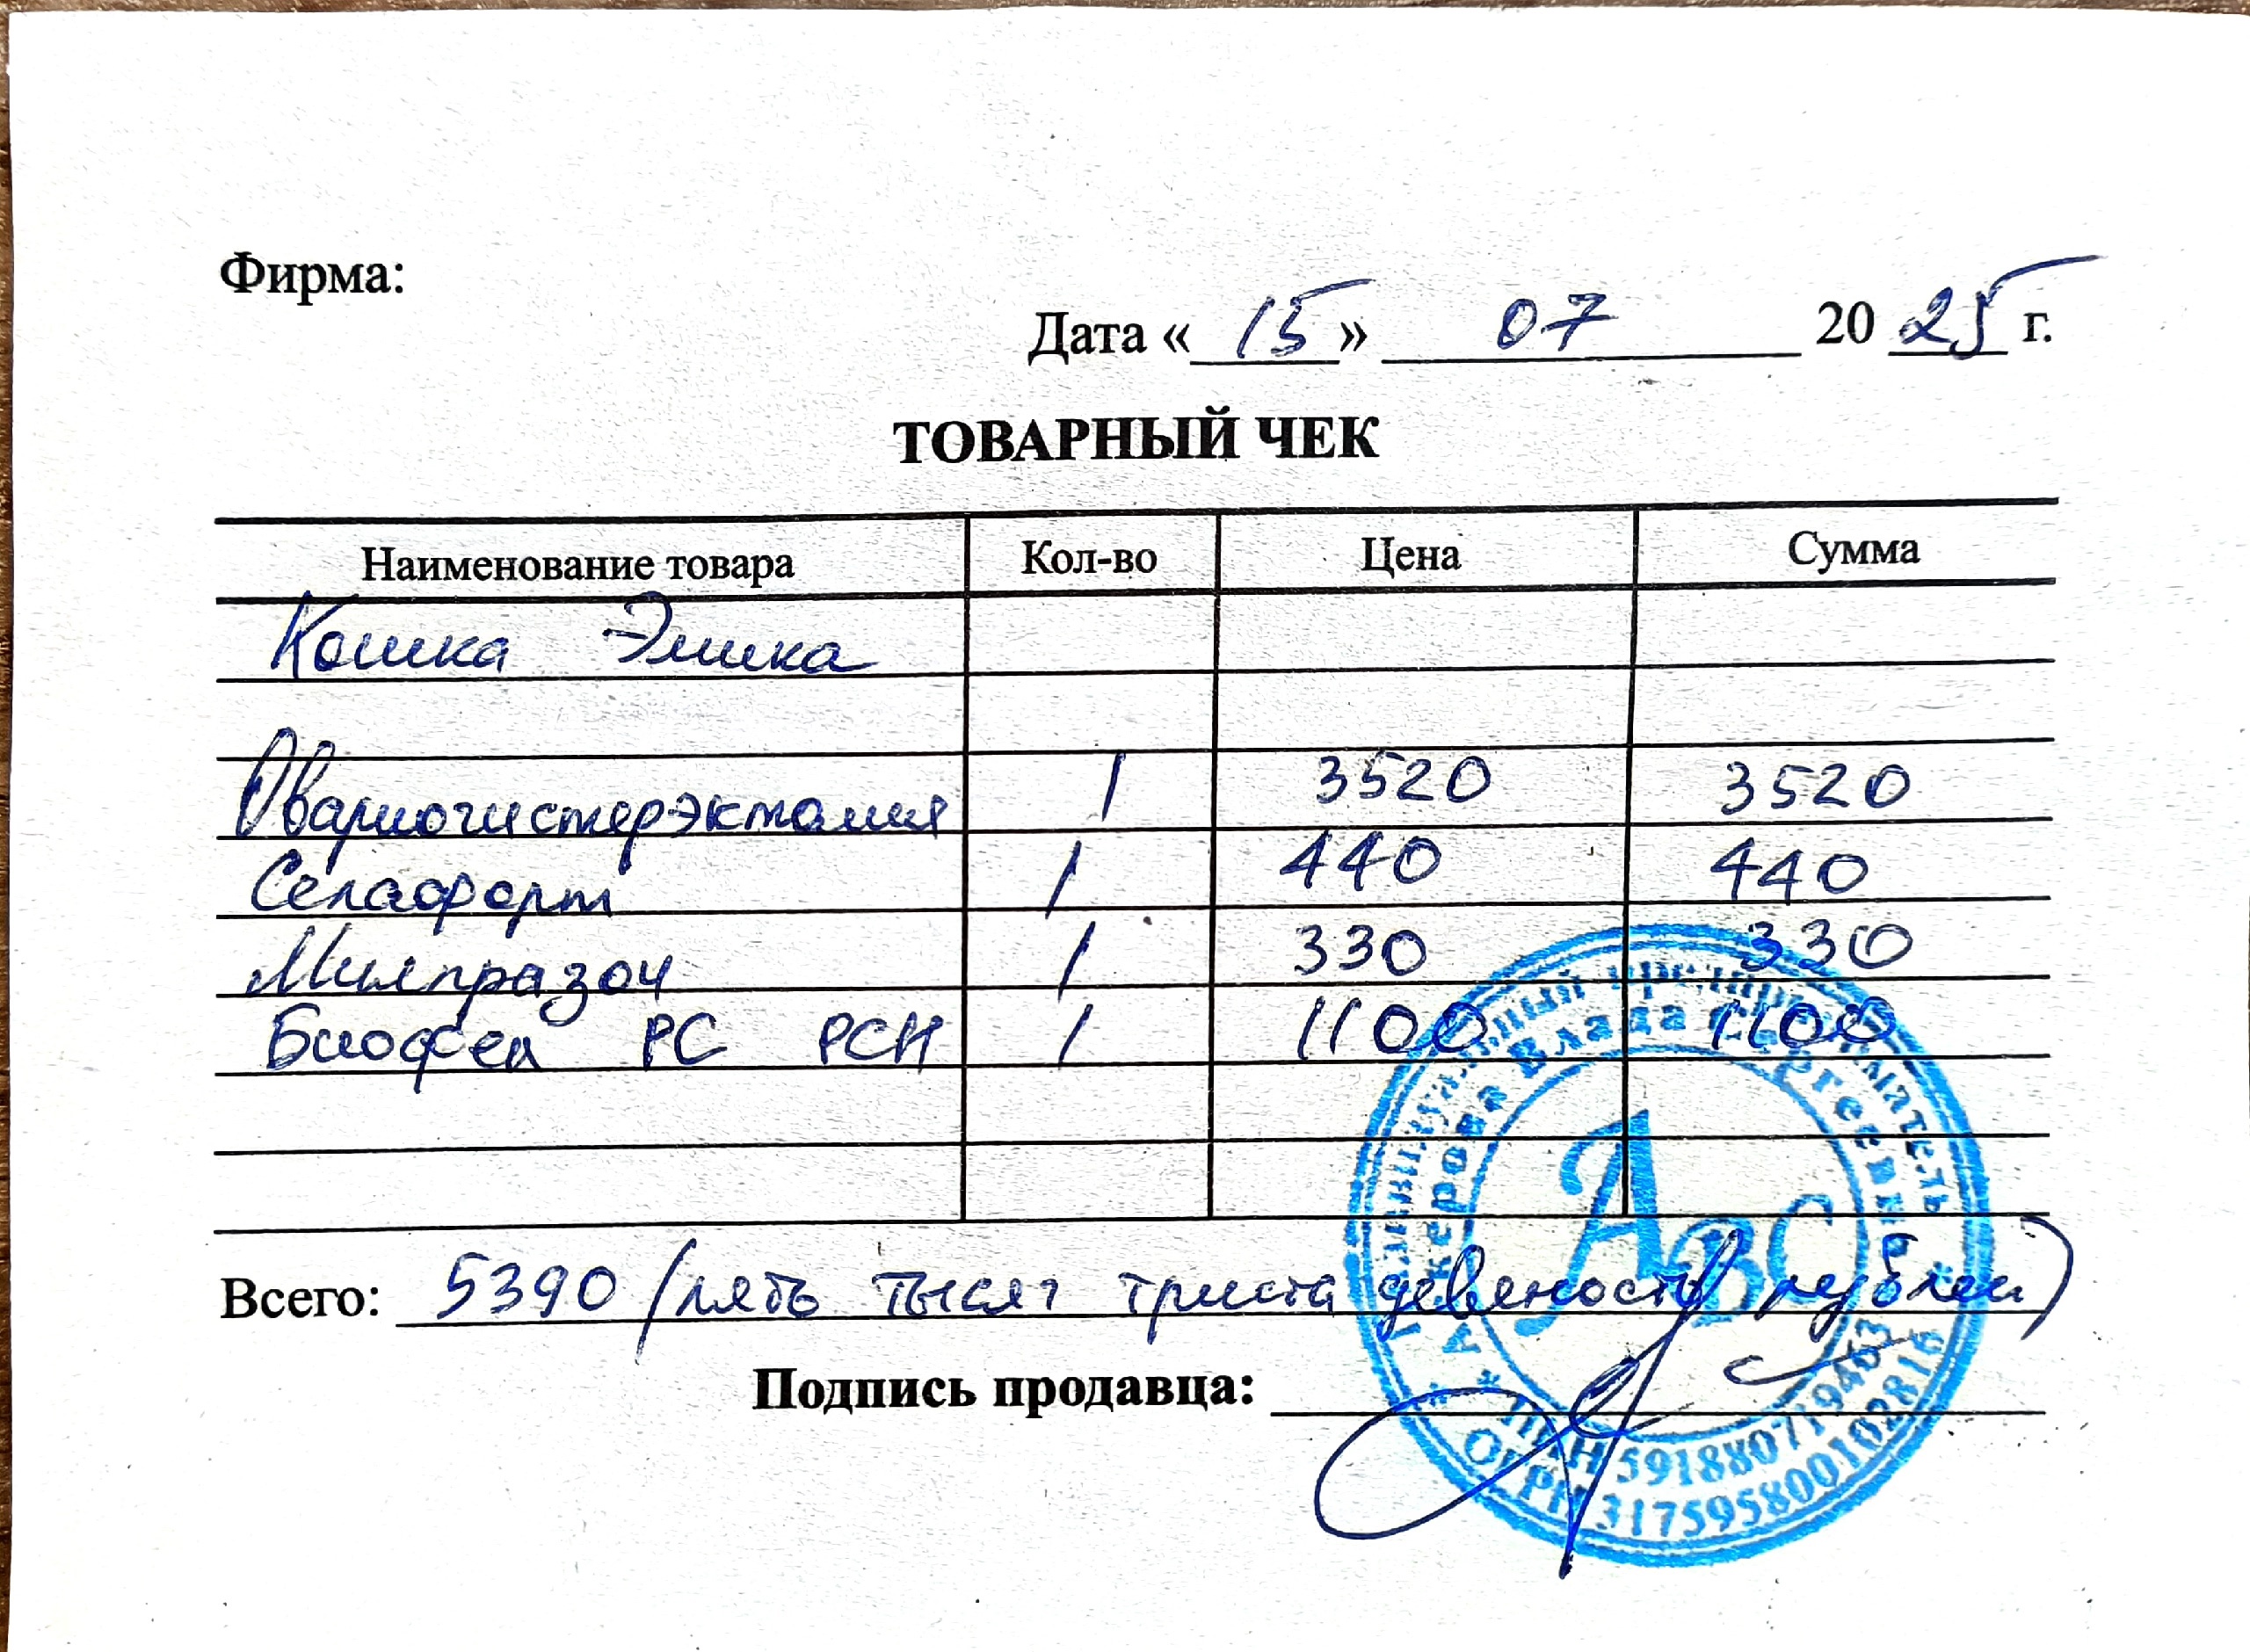 Фирма:
Дата «15» 07 2025 г.
ТОВАРНЫЙ ЧЕК
Наименование товара Кол-во Цена Сумма
Кошка Эшка
Овариогистерэктомия 1 3520 3520
Селафорт 1 440 440
Милпразон 1 330 330
Биофел PC PCH 1 1100 1100
Всего: 5390 (пять тысяч триста девяносто рублей)
Подпись продавца:
Индивидуальный предприниматель
Влада Сергеевна
АВС
ИНН 591880719463
ОГРН 317595800102816